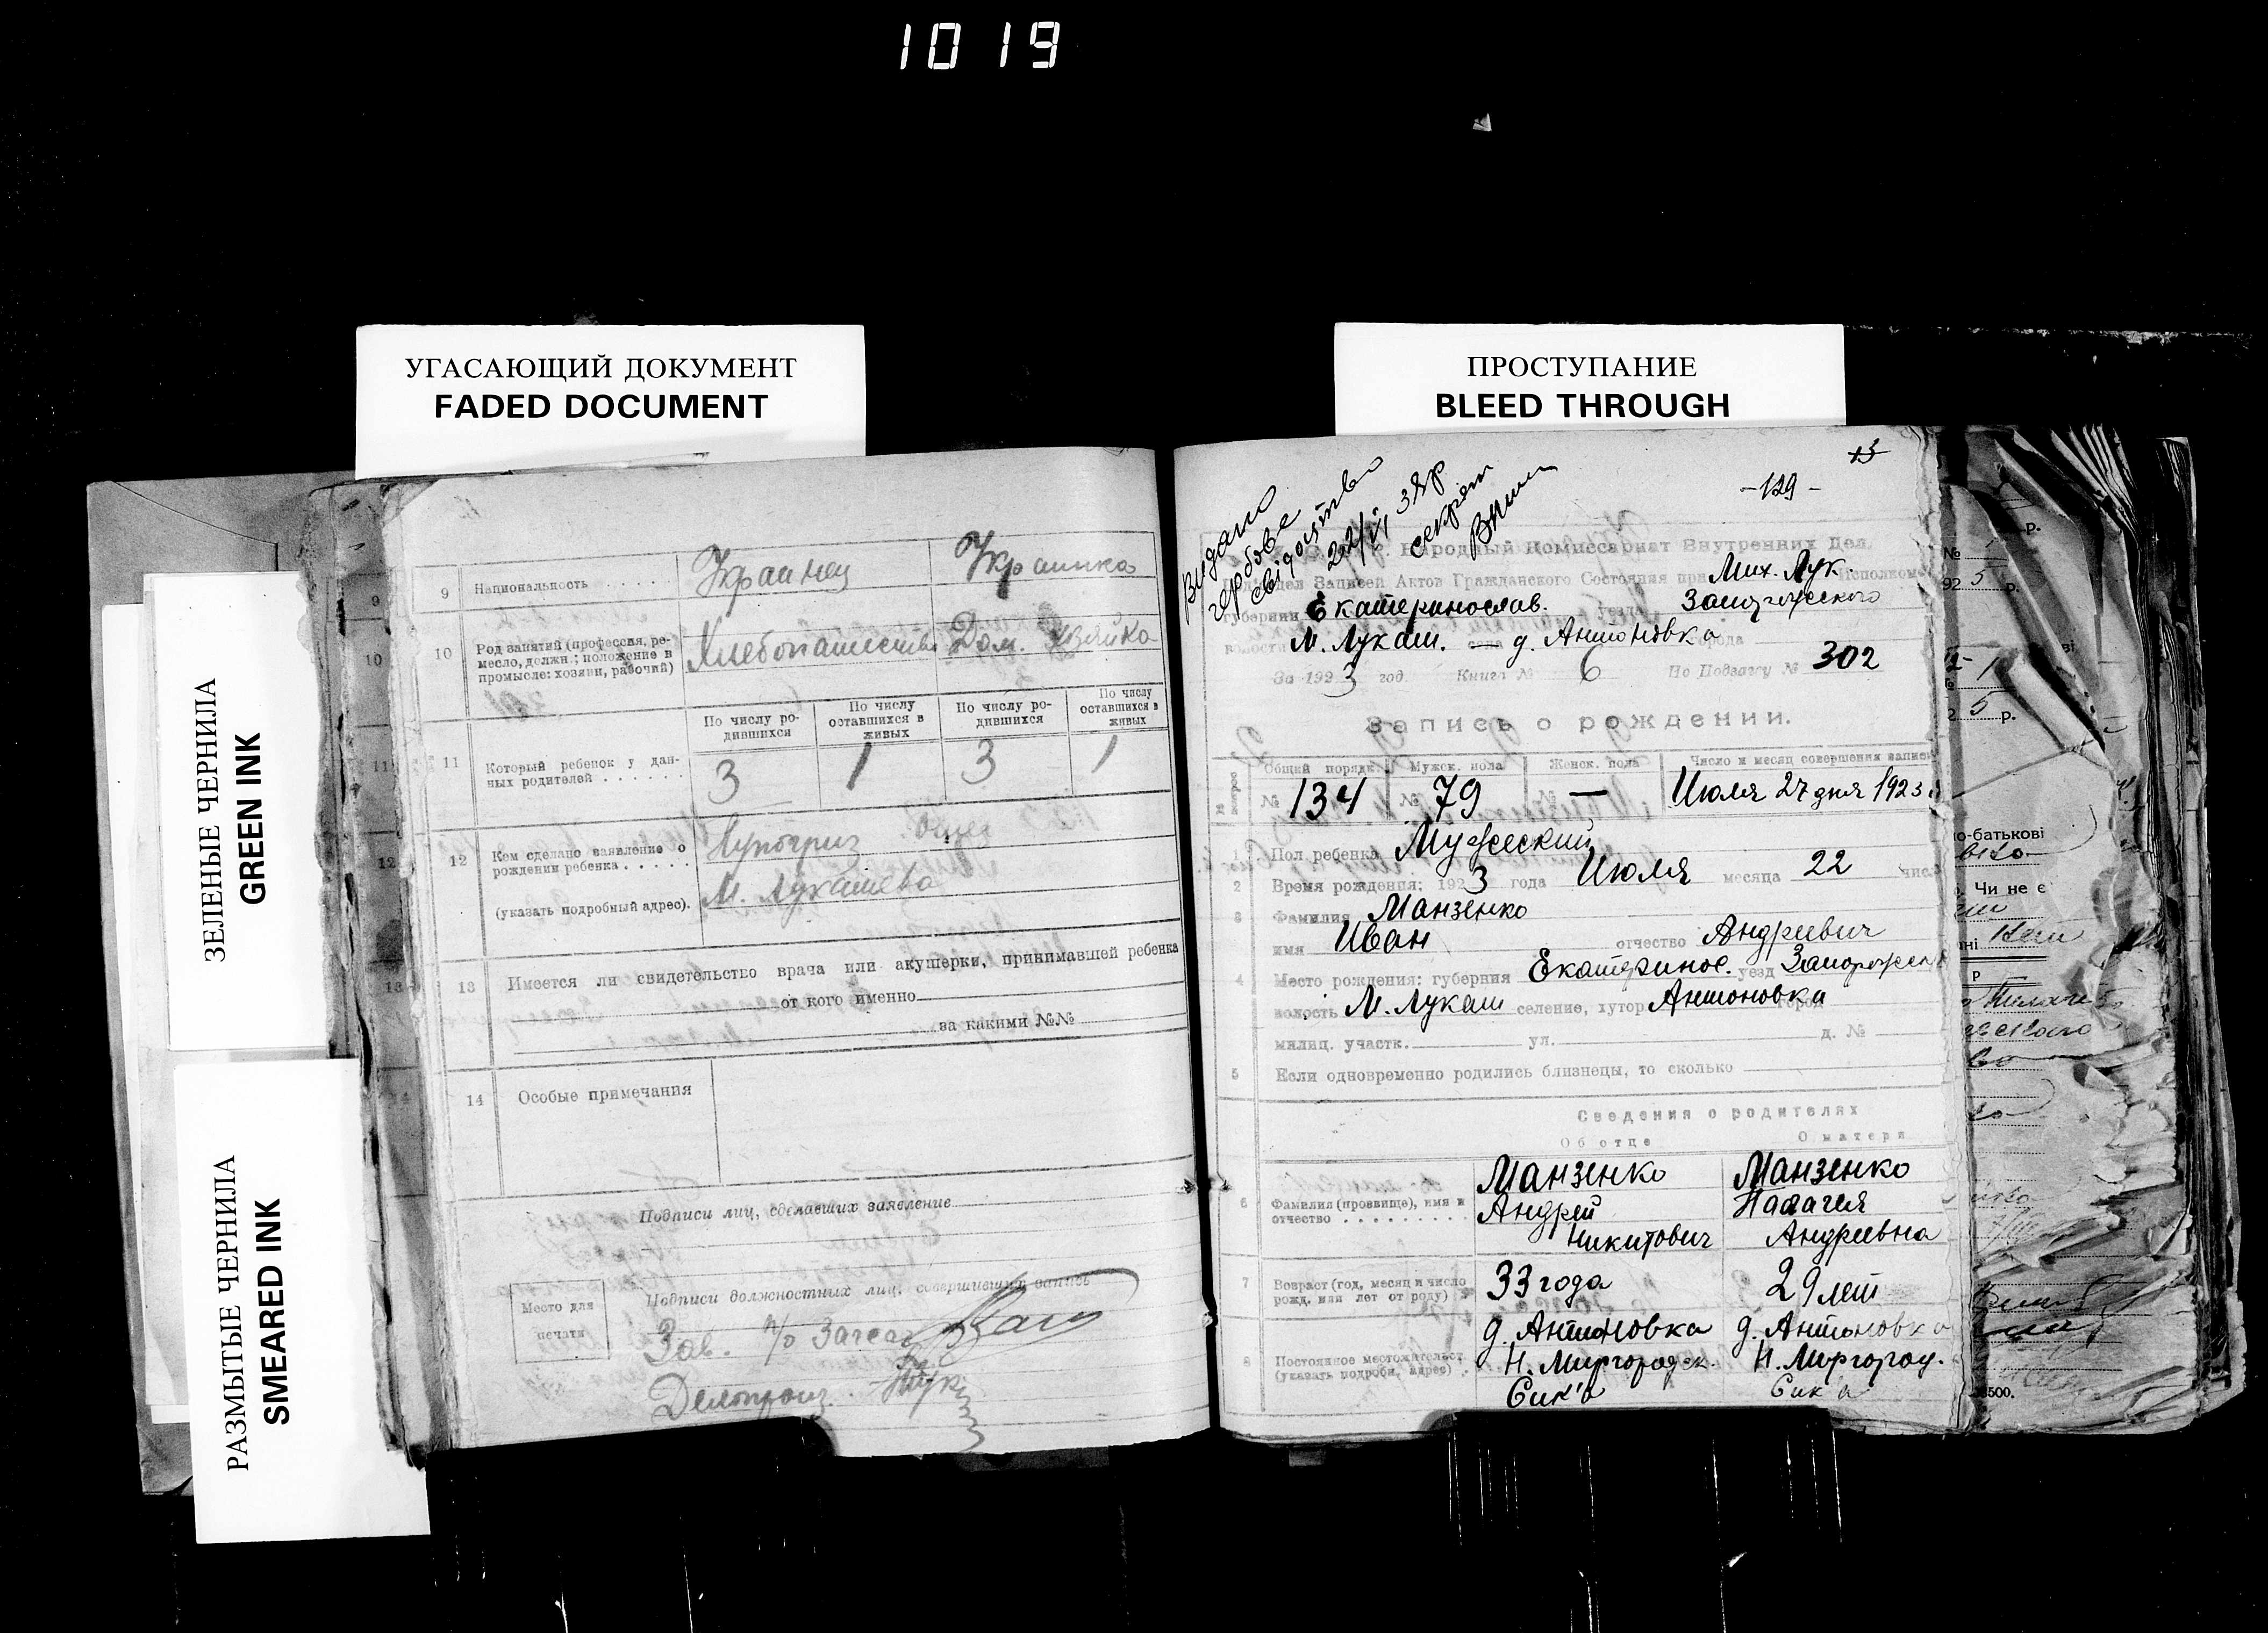 1019
УГАСАЮЩИЙ ДОКУМЕНТ
FADED DOCUMENT
ПРОСТУПАНИЕ
BLEED THROUGH
ЗЕЛЕНЫЕ ЧЕРНИЛА
GREEN INK
РАЗМЫТЫЕ ЧЕРНИЛА
SMEARED INK
9 Национальность . . . . . Украинец Украинка
10 Род занятий (профессия, ре-
месло, должн.; положение в
промысле: хозяин, рабочий)
Хлебопашество Дом. хозяйка
По числу ро-
дившихся
По числу
оставшихся в
живых
По числу ро-
дившихся
По числу
оставшихся в
живых
11 Который ребенок у дан-
ных родителей . . . . . . .
3 1 3 1
12 Кем сделано заявление о
рождении ребенка . . . . .
(указать подробный адрес).
Отец
М. Лукашево
13 Имеется ли свидетельство врача или акушерки, принимавшей ребенка
от кого именно
за какими №№
14 Особые примечания
Подписи лиц, сделавших заявление
Место для
печати
Подписи должностных лиц, совершивших запись
Зав. п/о Загса
Делопроиз.
13
-129-
Видано
гербове
свідоцтво
22/IV 38р
секрет
Народный Комиссариат Внутренних Дел.
Отдел Записей Актов Гражданского Состояния при Мих. Лук. Исполком
губернии Екатеринослав. уезда Запорожского
волости М. Лукаш. села д. Антоновка города
За 1923 год. Книга № 6 По Подзагсу № 302
Запись о рождении.
Общий порядк. Мужск. пола Женск. пола Число и месяц совершения записи
№ 134 № 79 № — Июля 27 дня 1923
1 Пол ребенка Мужеский
2 Время рождения: 1923 года Июля месяца 22 числ
3 Фамилия Манзенко
имя Иван отчество Андреевич
4 Место рождения: губерния Екатеринос. уезд Запорожск
волость М. Лукаш селение, хутор Антоновка город
милиц. участк. ул. д. №
5 Если одновременно родились близнецы, то сколько
Сведения о родителях
Об отце О матери
6 Фамилия (прозвище), имя и
отчество . . . . . . . . .
Манзенко
Андрей
Никитович
Манзенко
Андреевна
7 Возраст (год, месяц и число
рожд. или лет от роду)
33 года 29 лет
8 Постоянное местожительст.
(указать подробн. адрес) .
д. Антоновка
Н. Миргородск.
д. Антоновка
Н. Миргород.
№
р.
1925 р.
5 р.
по-батькові
Чи не є
500.